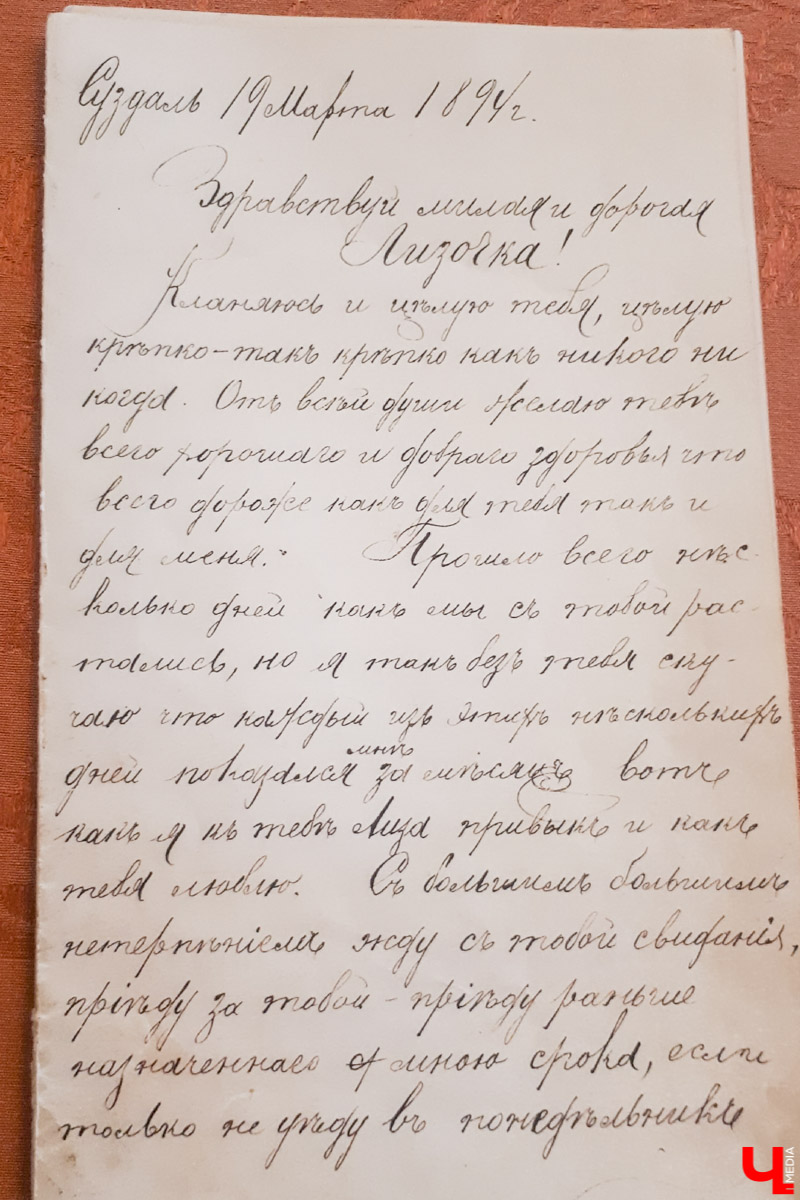 Суздаль 19 Марта 1894 г.
Здравствуй милая и дорогая
Лизочка!
Кланяюсь и цѣлую тебя, цѣлую
крѣпко-такъ крѣпко какъ никого ни
когда. Отъ всѣй души желаю тебѣ
всего хорошаго и добраго здоровья что
всего дороже какъ для тебя такъ и
для меня. Прошло всего нѣс-
колько дней какъ мы съ тобой рас-
тались, но я такъ безъ тебя ску-
чаю что каждый изъ этихъ нѣсколькихъ
дней показался мнѣ за мѣсяцъ вотъ
какъ я къ тебѣ Лиза привыкъ и какъ
тебя люблю. Съ большимъ большимъ
нетерпѣніемъ жду съ тобой свиданія,
пріѣду за тобой - пріѣду раньше
назначеннаго мною срока, если
только не уѣду въ понедѣльникъ
Ч.
MEDIA